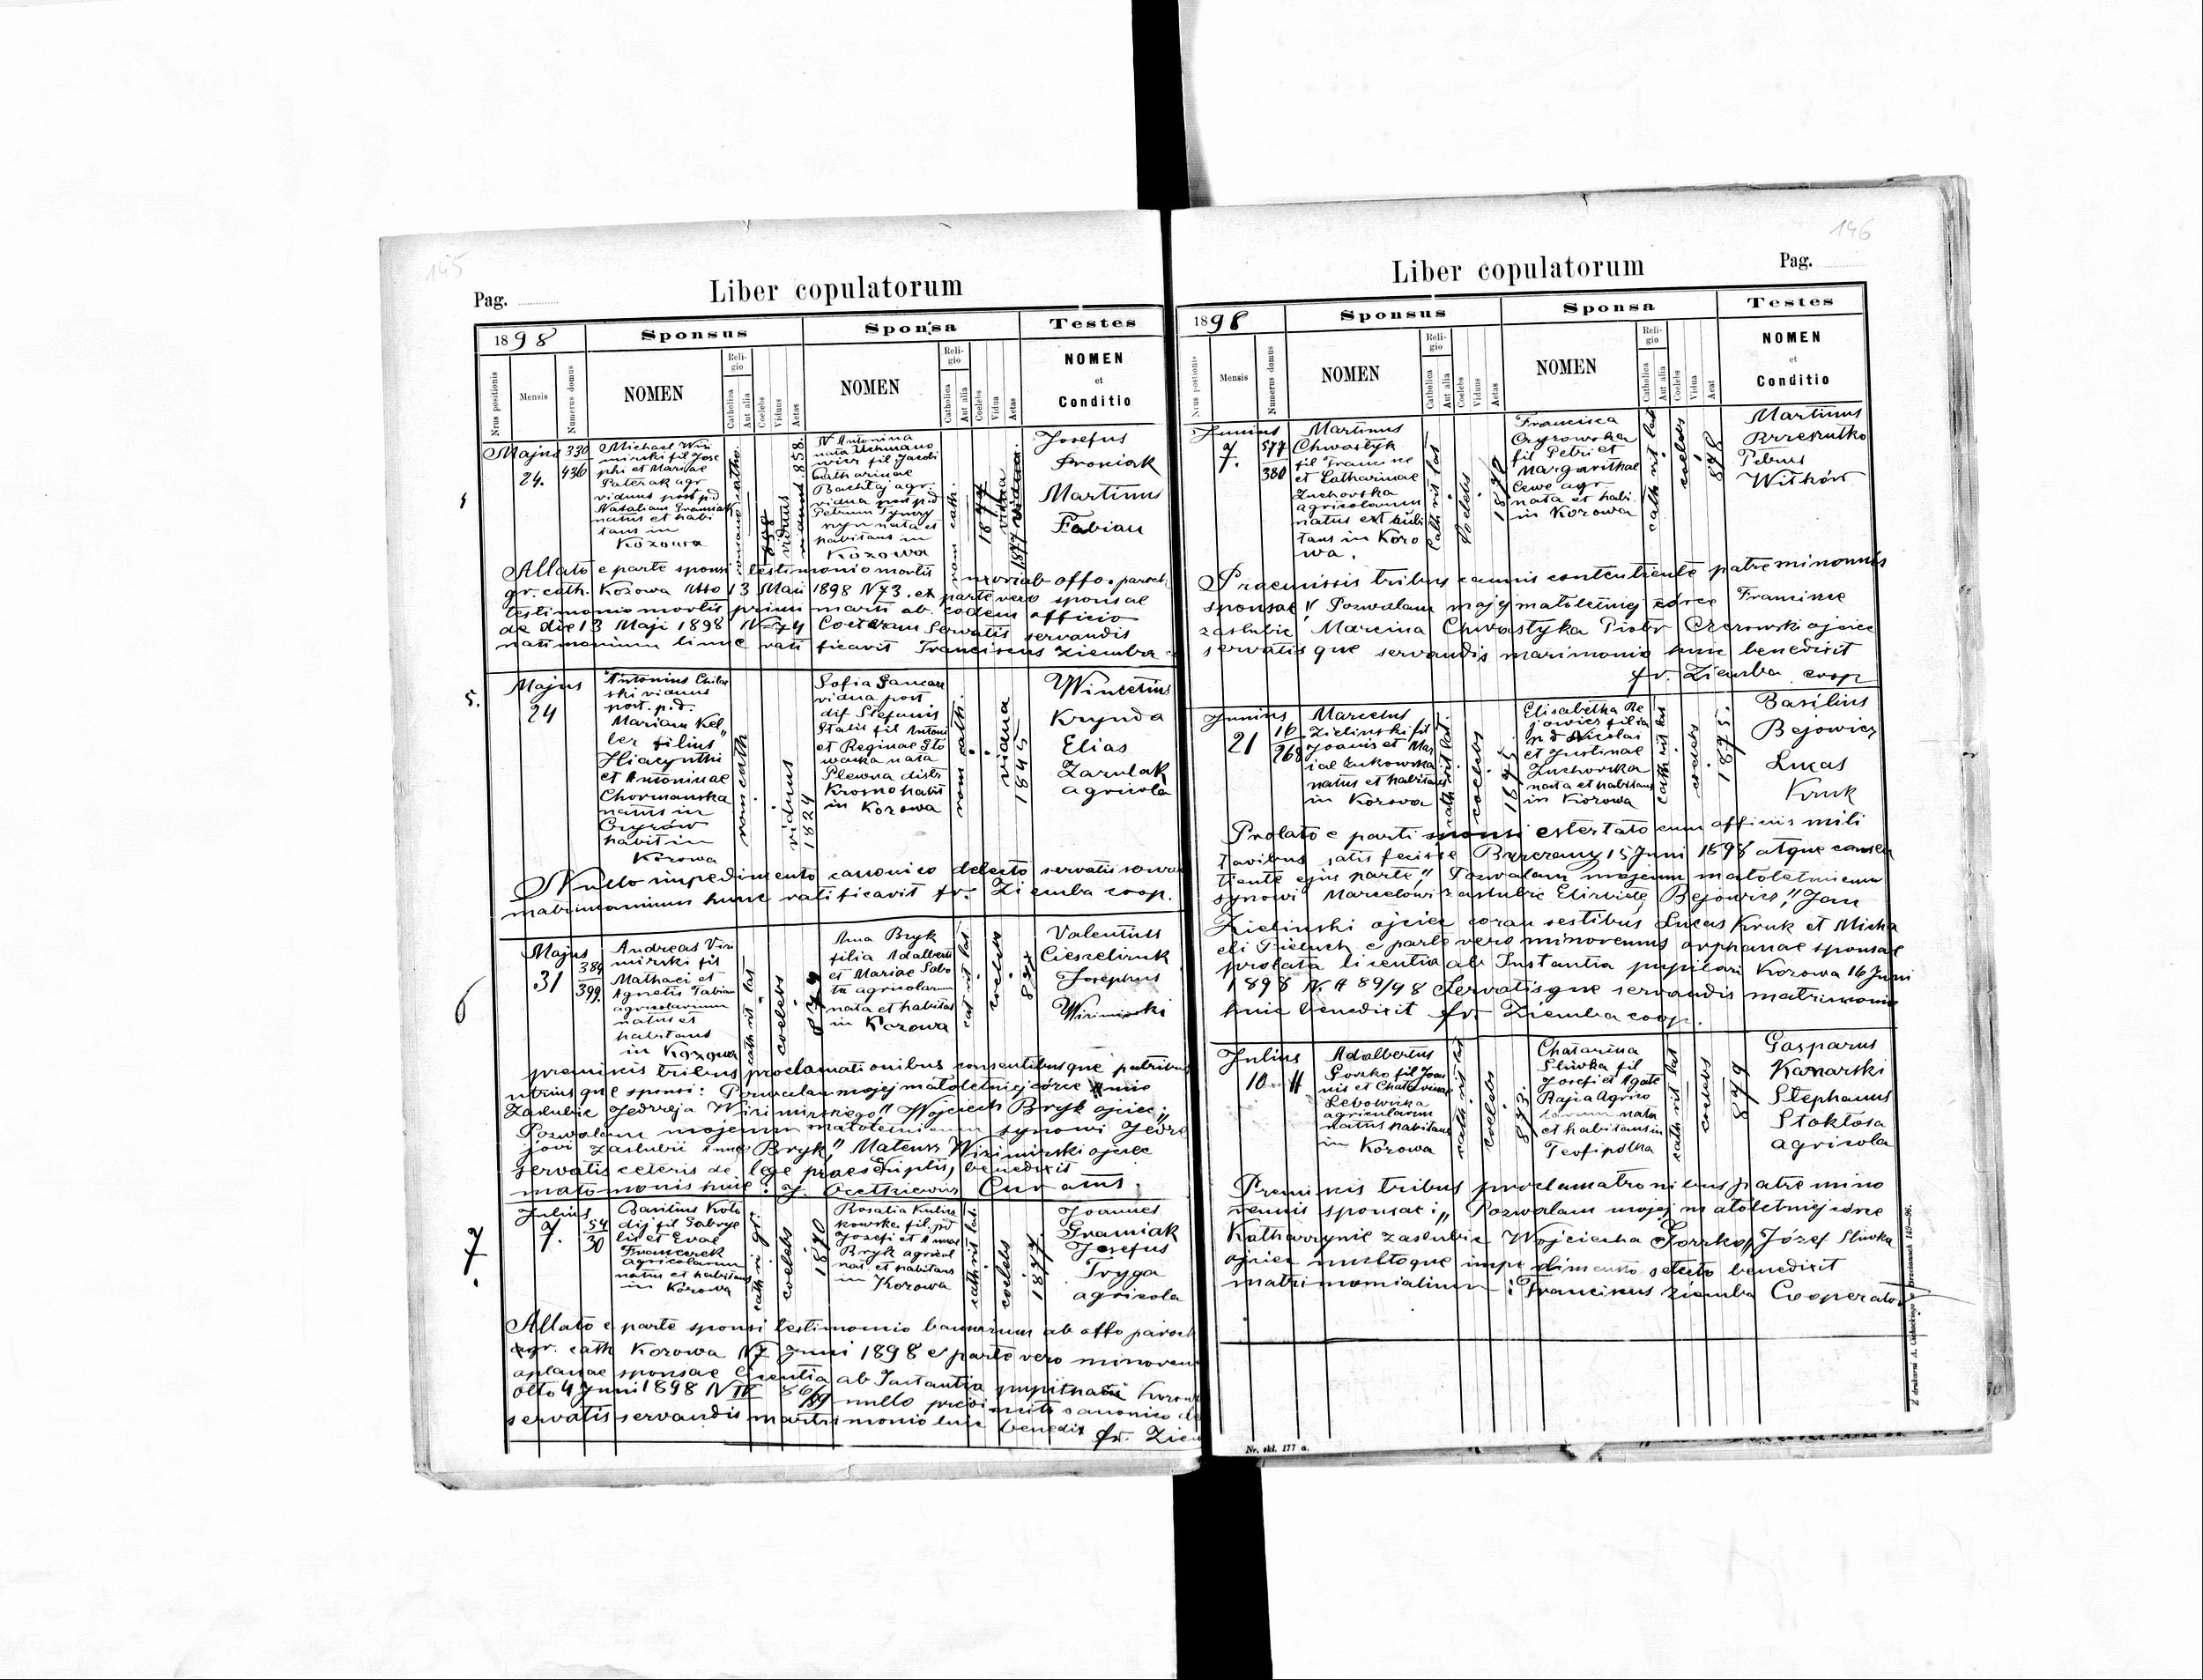 145
Pag.
Liber copulatorum
1898
Sponsus
Sponsa
Testes
Nrus positionis
Mensis
Numerus domus
NOMEN
Religio
Catholica
Aut alia
Coelebs
Viduus
Aetas
NOMEN
Religio
Catholica
Aut alia
Coelebs
Vidua
Aetas
NOMEN
et
Conditio
Majus
24.
330
436
Michael Wiri
mirski fil Jose
phi et Mariae
Paterak agr
viduus post p.d
Nataliam
natus et habi
tans in
Kozowa
viduus
858.
Antonina
nata
wicz fil Jacobi
Catharinae
Bachtaj agr.
vidua post p.d
Petrum Tymry
nata et
habitans in
Kozowa
rom cath.
1877 vidua
Josefus
Martinus
Fabian
Allato e parte sponsi testimonio mortis ab offo. paroch
gr. cath. Kozowa dtto 13 Maii 1898 N 73. ex parte vero sponsae
testimonio mortis primi mariti ab. eodem officio
de die 13 Maji 1898 N 74 Coeteram servatis servandis
matrimonium hunc rati ficavit Franciscus Ziemba
5.
Majus
24
Antonius
ski viduus
post. p.d.
Mariam Kel
ler filius
Hiacynthi
et Antoninae
Chormanska
natus in
habit in
Kozowa
rom cath
viduus
1824
Sofia
vidua post
dif Stefanis
Stalis fil Antoni
et Reginae Glo
wacka nata
Plewna distr
Krosno habit
in Kozowa
rom cath.
vidua
1845
Wincetius
Krynda
Elias
Zarulak
agricola
Nullo impedimento canonico delecto servatis
matrimonium hunc ratificavit fr. Ziemba coop.
6
Majus
31
384
399.
Andreas Wiri
mirski fil
Mathaei et
Agnetis Fabian
agricolarum
natus et
habitans
in Kozowa
cath rit lat
coelebs
Anna Bryk
filia Adalberti
et Mariae Sobo
ta agricolarum
nata et habitans
in Kozowa
cat rit lat
coelebs
Valentius
Josephus
Wirimirski
premisis tribus proclamationibus consentibusque patribus
utriusque sponsi: Pozwalam mojej małoletniej córce Annie
zaslubic Jedrzeja Wirimirskiego" Wojciech Bryk ojciec;
Pozwalam mojemu małoletniemu synowi Jedrz
jovi zaslubic Anne Bryk" Mateusz Wirimirski ojciec
servatis ceteris de lege praescriptis, benedixit
matomonis huic: J. Curatus.
7.
Julius
7.
54
30
Basilius Koło
dij fil Gabrye
lis et Evae
Francerek
agricolarum
natus et habitans
in Kozowa
cath ri gr.
coelebs
1870
Rosalia
kowska fil. pd
Josefi et Annae
Bryk agricol
nat. et habitans
in Kozowa
cath rit lat.
coelebs
1877.
Joannes
Gramiak
Josefus
Tryga
agricola
Allato e parte sponsi testimonio bannorum ab offo paroch
gr. cath Kozowa N 7 Juni 1898 e parte vero minoren
sponsae licentia ab Instantia pupilari Kozow
dtto 4 Juni 1898 N IV nullo canonico de
servatis servandis matrimonio huic benedix fr. Ziem
146
Liber copulatorum
Pag.
1898
Sponsus
Sponsa
Testes
Nrus positionis
Mensis
Numerus domus
NOMEN
Religio
Catholica
Aut alia
Coelebs
Viduus
Aetas
NOMEN
Religio
Catholica
Aut alia
Coelebs
Vidua
Aeat
NOMEN
et
Conditio
Junius
7.
577
380
Martinus
Chwostyk
fil Francisc
et Catharinae
Zuchovska
agricolarum
natus ext habi
tans in Kozo
wa.
Cath rit lat
coelebs
1872
Francisca
Czyrowska
fil Petri et
Margarithae
Cewe agr
nata et habi.
in Kozowa
cath rit lat
coelebs
878
Martinus
Brzeszutko
Petrus
Witków
Praemissis tribus consentiente patre minorenis
sponsae" Pozwalam mojej małoletniej córce Francisce
zaslubic Marcina Chwostyka Piotr Czerowski ojciec
servatis que servandis marimonio hunc benedixit
fr. Ziemba coop
Junius
21
16
268
Marcelus
Zielinski fil
Joanis et Mar
iae Zukowska
natus et habitans
in Kozova
cath rit lat.
coelebs
1875.
Elisabetha Be
jowicz filia
p d Nicolai
et Justinae
Zuchovska
nata et habitans
in Kozowa
cath rit lat
coelebs
1875.
Basilius
Bejowicz
Lucas
Kruk
Prolato e parti sponsi cum officiis mili
taribus satis fecisse Brzezany 15 Juni 1898 atque consen
tiente ejus parte," Pozwalam mojemu małoletniemu
synowi Marcelowi zaslubic Elzbiete Bejowicz," Jan
Zielinski ojciec coram testibus Lucas Kruk et Micha
eli Pieluch e parte vero minorennis orphanae sponsae
prolata licentia ab Instantia pupilari Kozowa 16 Juni
1898 N. A 89/98 Servatisque servandis matrimonio
huic benedixit fr. Ziemba coop.
Julius
10
Adalbertus
Gorzko fil Joan
nis et Chatarinae
Lebowicka
agricolarum
natus habitans
in Kozowa
cath rit lat
coelebs
873.
Chatarina
Sliwka fil
Josefi et Agate
Bajia Agrico
larum nata
et habitans in
Teofipolka
cath rit lat
coelebs
879
Gasparus
Kanarski
Stephanus
Stoklosa
agricola
Premisis tribus proclamationibus patre mino
rennis sponsae;" Pozwalam mojej małoletniej córce
Katharzynie zaslubic Wojciecha Gorzko, Józef Sliwka
ojciec nulloque impedimento detecto benedixit
matrimomialium: Franciscus Ziemba Cooperator
Nr. skl. 177 a.
Z drukarni A. Cichockiego w Brzezanach 149—96.